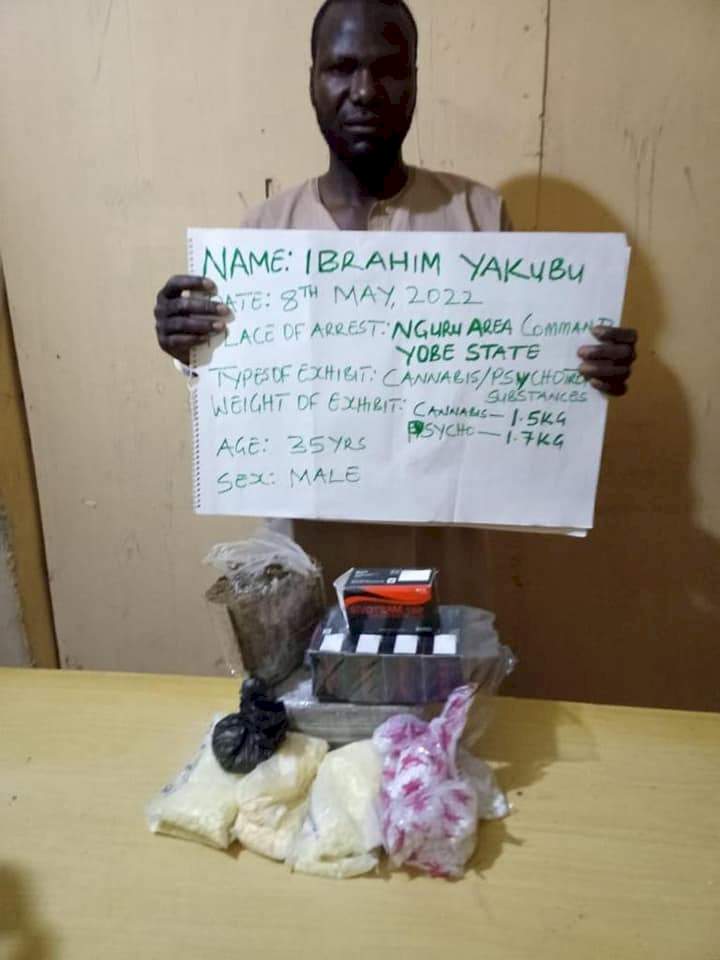 NAME: IBRAHIM YAKUBU
DATE: 8TH MAY, 2022
PLACE OF ARREST: NGURU AREA COMMAND
YOBE STATE
TYPES OF EXHIBIT: CANNABIS/PSYCHOTRO
SUBSTANCES
WEIGHT OF EXHIBIT: CANNABIS — 1.5KG
PSYCHO — 1.7KG
AGE: 35YRS
SEX: MALE